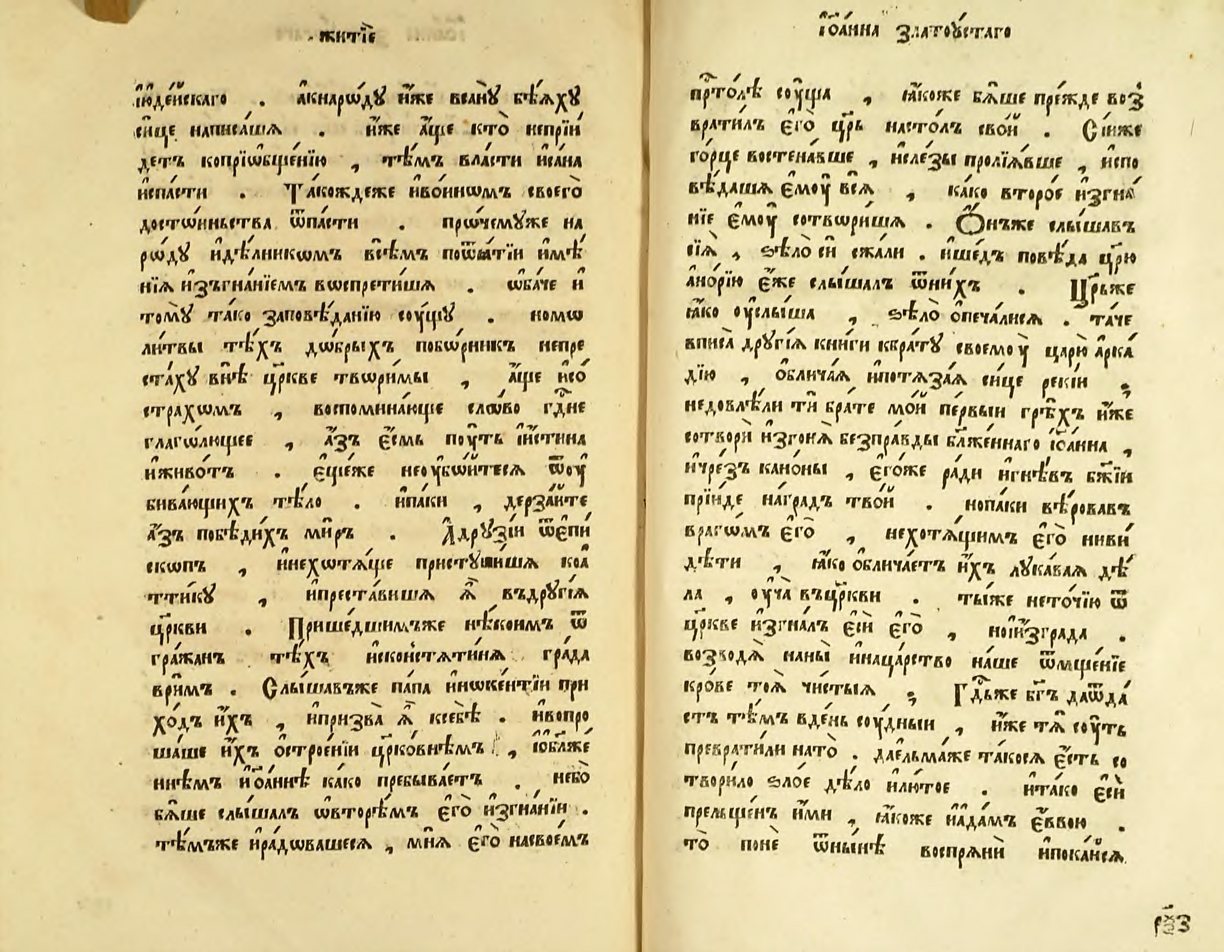 житїе
їюде́йскаго . акнаро́дꙋ и҆́же ѡсанꙋ бѣ́ѧхꙋ
си́це написа́шѧ . и҆́же а҆́ще кто̀ непрїи
детъ копрїѡбще́нїю , тѣ́мъ вла́сти и҆са́на
и҆спа́сти . Та́кождеже и҆во́инѡмъ своего̀
досто́иньства ѿпа́сти . про́чемꙋже на
ро́дꙋ и҆дѣ́лникѡмъ всѣ́мъ поѿѧ́тїи и҆мѣ́
нїѧ и҆зъгна́нїемъ воспрети́шѧ . ѡ҆ба́че и҆
томꙋ̀ та́ко заповѣ́данїю сꙋ́щꙋ . номѡ
ли́твы тѣ́хъ до́брыхъ побо́рникъ непре
ста́хꙋ внѣ̀ цр҃кве твори́мы , а҆́ще и҆со̀
стра́хомъ , воспомина́юще сло́во гдⷭ҇не
глаго́лющее , а҆́зъ є҆́смь пꙋ́ть и҆и҆́стина
и҆живо́тъ . є҆ще́же неоубо́йтесѧ ѿоу
бива́ющихъ тѣ́ло . и҆па́ки , дерза́йте
а҆́зъ побѣди́хъ ми́ръ . А҆дрꙋзі́и ѿє҆пи́
скопъ , и҆нехотѧ́ще пристꙋпи́шѧ коа҆
ттикꙋ , и҆преста́вишѧ ѧ҆̀ въдрꙋгі́ѧ
цр҃кви . Прише́дшимъже нѣ́коимъ ѿ
гра́жанъ тѣ́хъ и҆сконстѧнти́нѧ гра́да
ври́мъ . Слы́шавъже па́па и҆ноке́нтїи при
хо́дъ и҆́хъ , и҆призва̀ ѧ҆̀ ксебѣ̀ . и҆вопро
ша́ше и҆́хъ ѡ҆строе́нїи цр҃ко́внѣмъ , и҆ѡбл҃же́
ннѣмъ и҆ѡа́ннѣ ка́ко пребыва́етъ . небо̀
бѧ́ше слы́шалъ ѡ҆вторѣ́мъ є҆го̀ и҆згна́нїи .
тѣ́мъже и҆ра́довашесѧ , мнѧ̀ є҆го̀ насвое́мъ
і҆ѡа́нна златоꙋ́стаго
пр҃то́лѣ сꙋ́ща , ꙗ҆́коже бѧ́ше пре́жде воз
врати́лъ є҆го̀ цр҃ь насто́лъ сво́й . Сі́иже
го́рце востена́вше , и҆сле́зы пролїѧ́вше , и҆спо
вѣ́дашѧ є҆мꙋ̀ всѧ̀ , ка́ко второ́е и҆згна́
нїе є҆мꙋ̀ сотвори́шѧ . О҆́нъже слы́шавъ
сїѧ̀ , ѕѣло̀ сѝ сжа́ли . и҆ше́дъ повѣ́да цр҃ю
ано́рїю є҆́же слы́шалъ ѿни́хъ . Цр҃ьже
ꙗ҆́ко оуслы́ша , ѕѣло̀ ѡ҆печа́лисѧ . та́че
вписа̀ дрꙋгі́ѧ кни́ги кбра́тꙋ своемꙋ̀ царю̀ а҆рка́
дїю , ѡ҆блича́ѧ и҆потѧза́ѧ си́це рекі́й ,
недовлѣ́ли тѝ бра́те мо́й пе́рвыи грѣ́хъ и҆́же
сотворѝ и҆згонѧ̀ безпра́вды бл҃же́ннаго і҆ѡа́нна ,
и҆чрезъ кано́ны , є҆го́же ра́ди и҆гнѣ́въ бж҃їи
прїи́де награ́дъ тво́й . нопа́ки вѣ́ровавъ
враго́мъ є҆го̀ , нехотѧ́щимъ є҆го̀ ниви́
дѣти , ꙗ҆́ко ѡ҆блича́етъ и҆́хъ лꙋка́ваѧ дѣ
ла̀ , оуча̀ въцр҃кви . ты́же нето́чїю ѿ
цр҃кве и҆згна́лъ є҆сѝ є҆го̀ , нои҆изгра́да .
возводѧ̀ наны̀ и҆нацарство на́ше ѿмще́нїе
кро́ве тоѧ̀ чи́стыѧ , Гдⷭ҇ьже бг҃ъ даѿда́
стъ тѣ́мъ вде́нь сꙋ́дныи , и҆́же тѧ̀ сꙋ́ть
преврати́ли нато̀ . дае҆льма́же такоѧ̀ є҆́сть со
твори́ло ѕло́е дѣ́ло и҆лю́тое . и҆та́ко є҆сѝ
прельще́нъ и҆́ми , ꙗ҆́коже и҆а҆да́мъ є҆́ввою .
то̀ понѐ ѿны́нѣ воспрѧнѝ и҆пока́йсѧ
рѯ҃з